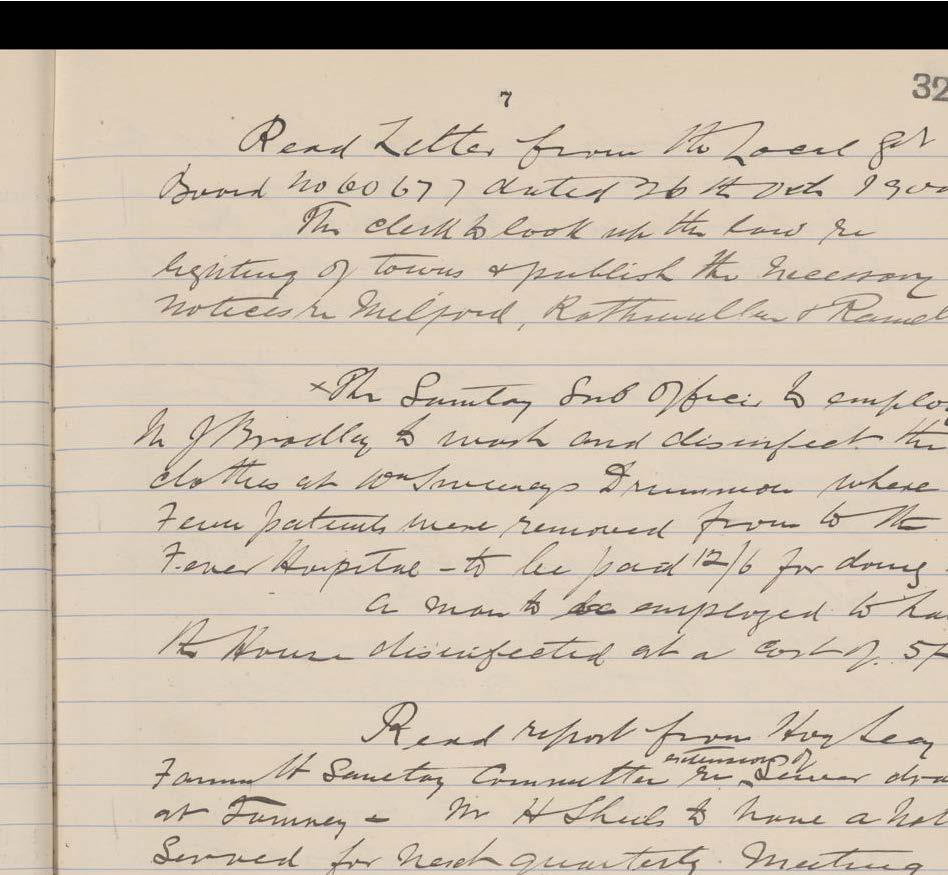 7
32
Read Letter from the Local Got
Board No 60677 dated 26th Oct 190
The clerk to look up the law re
lighting of towns & publish the necessary
notices re Milford, Rathmullan & Ramel
x The Sanitary Sub Officer to emplo
M J Bradley to wash and disinfect the
clothes at Wm Sweeneys Drummon where
Fever patients were removed from to the
Fever Hospital - to be paid 12/6 for doing
a man to be employed to ha
the House disinfected at a cost of 5/
Read report from Hon Secy
Fannett Sanitary Committee re extension of Sewer dra
at Tamney - Mr H Sheils to have a Not
Served for next quarterly Meeting